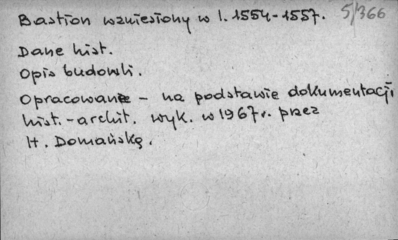 Bastion wzniesiony w l. 1554-1557. 5/366
Dane hist.
Opis budowli.
Opracowane - na podstawie dokumentacji
hist.-archit. wyk. w 1967r. przez
H. Domańską.